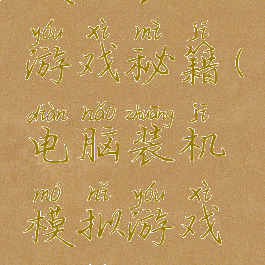 yóu xì mì jí
游戏秘籍(
diàn nǎo zhuāng jī
电脑装机
mó nǐ yóu xì
模拟游戏